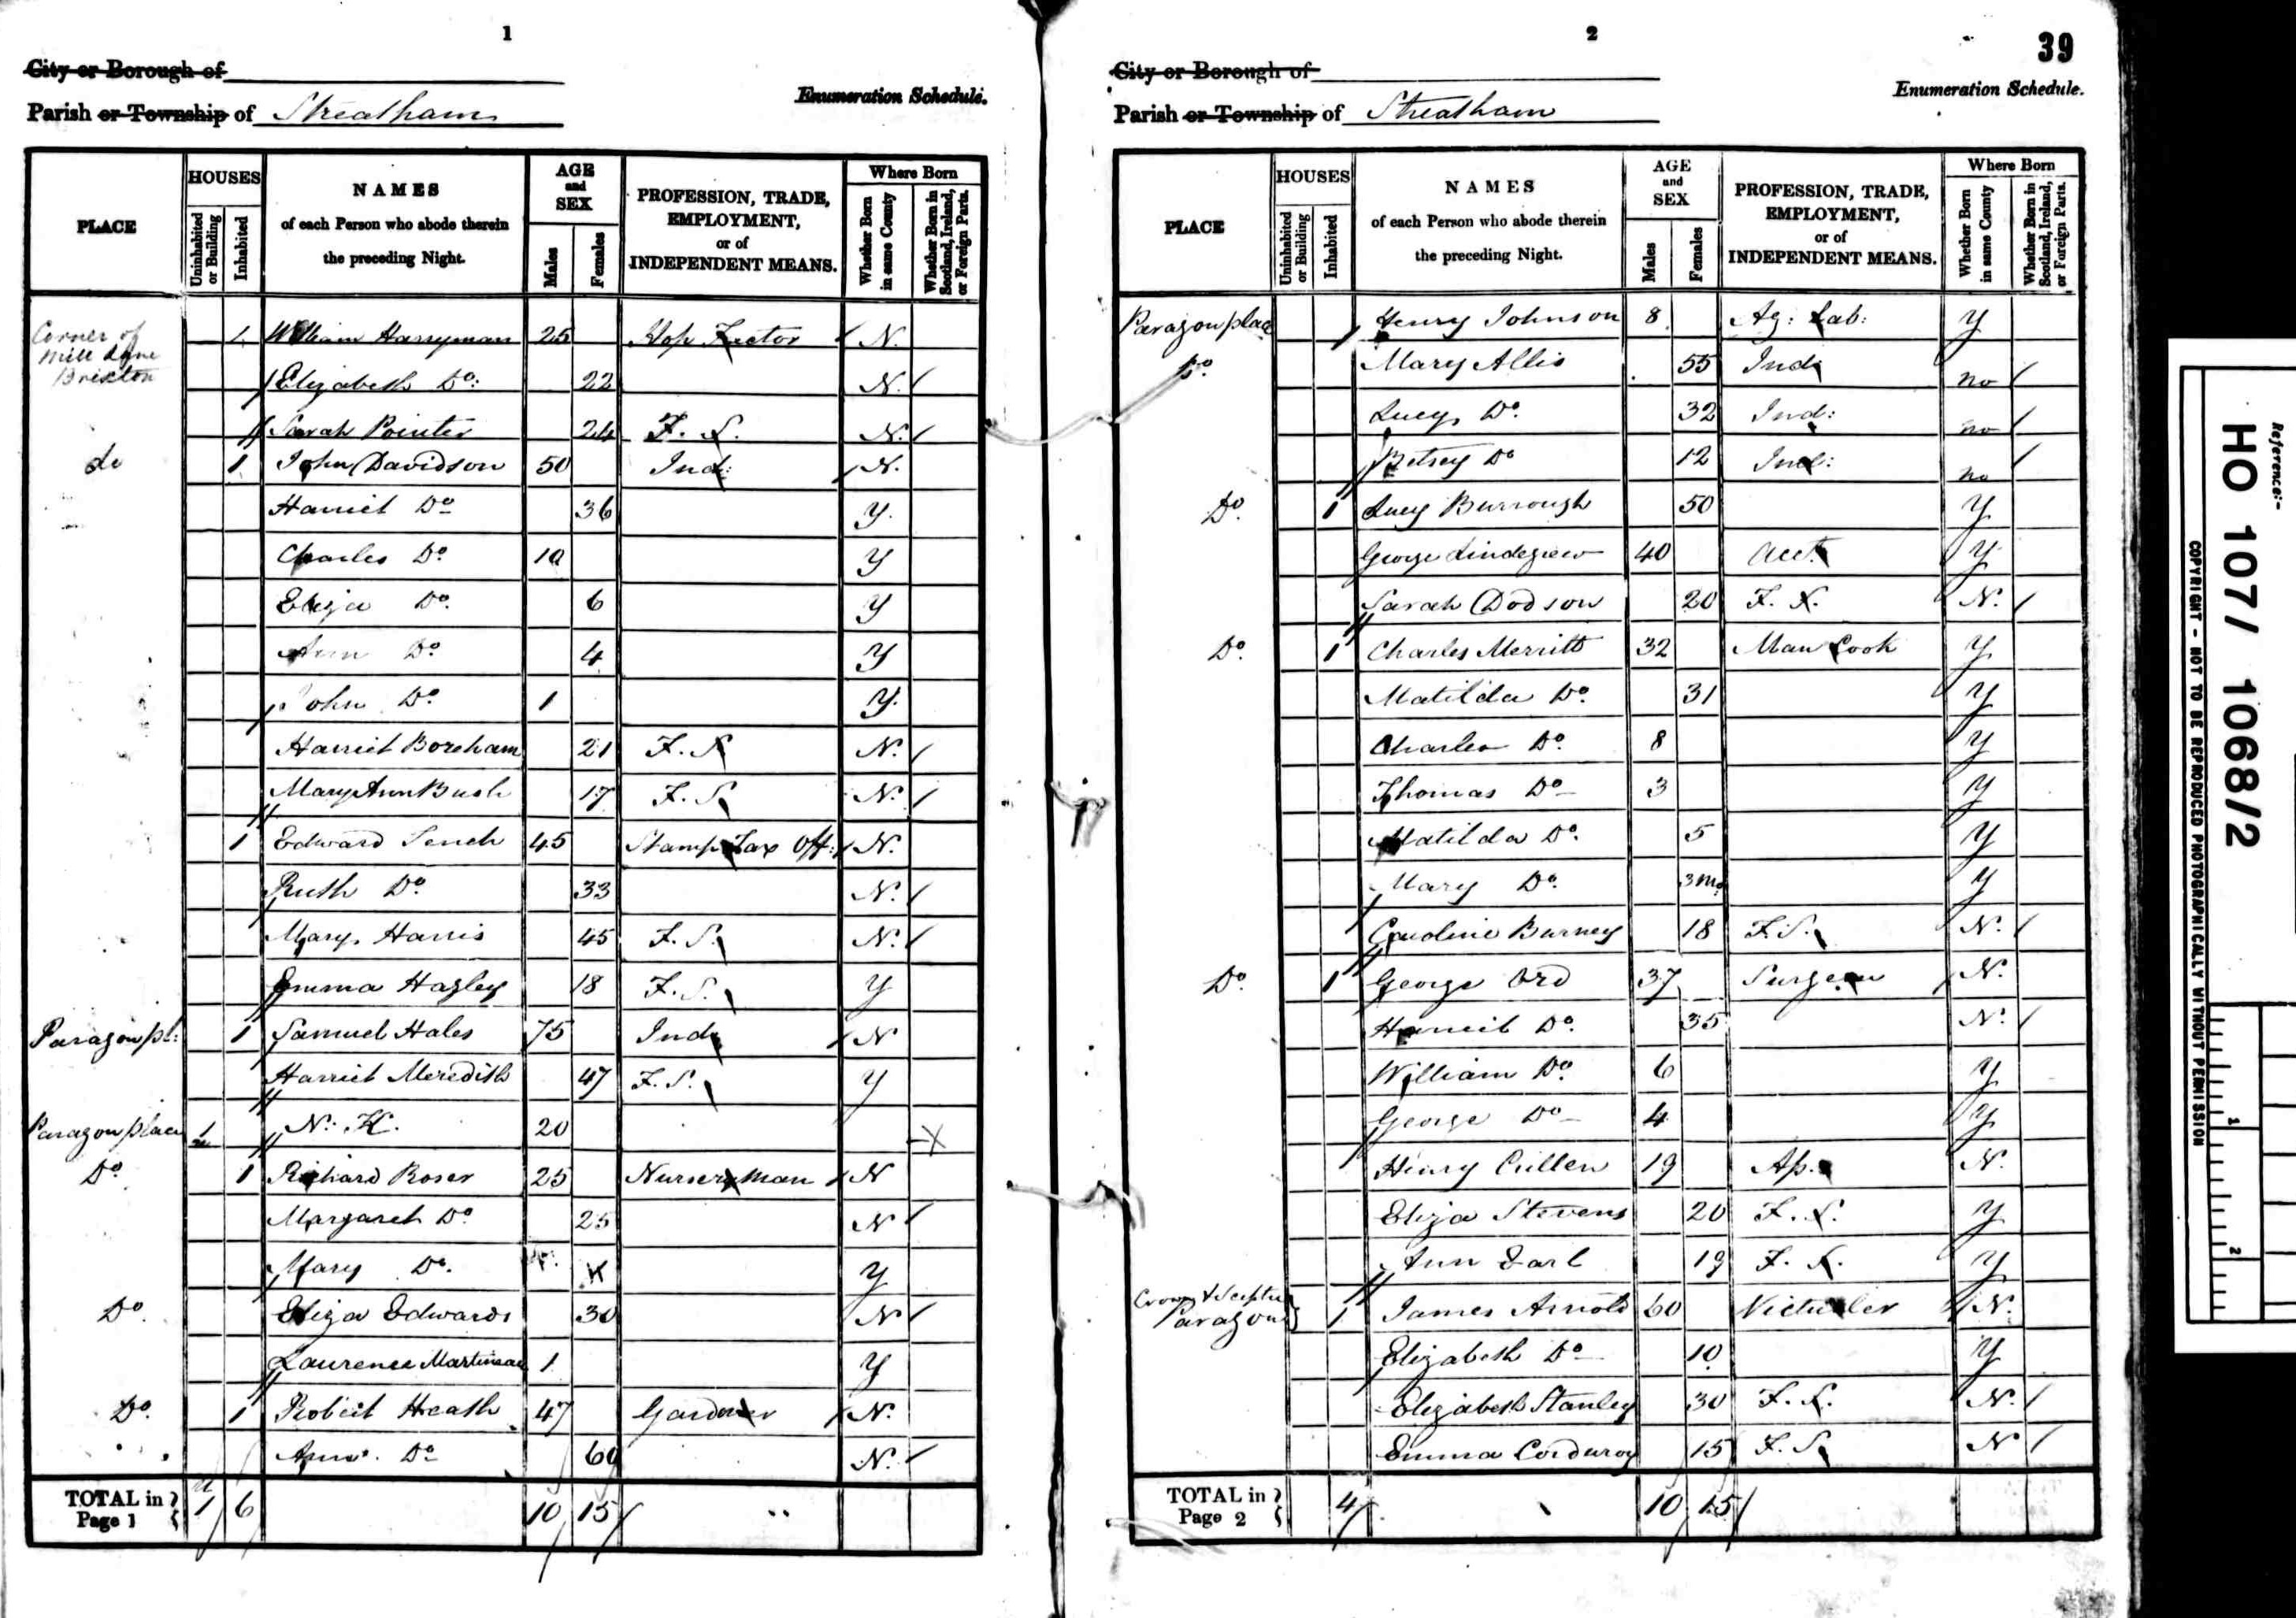 1
City or Borough of
Enumeration Schedule.
Parish or Township of Streatham
PLACE
HOUSES
Uninhabited or Building
Inhabited
NAMES
of each Person who abode therein
the preceding Night.
AGE
and
SEX
Males
Females
PROFESSION, TRADE,
EMPLOYMENT,
or of
INDEPENDENT MEANS.
Where Born
Whether Born in same County
Whether Born in Scotland, Ireland, or Foreign Parts.
Corner of 1 William Harryman 25 Hop Factor N.
Mill Lane
Brixton Elizabeth Do: 22 N.
Sarah Pointer 24 F. S. N.
do 1 John Davidson 50 Ind: N.
Harriet Do 36 Y.
Charles Do. 10 Y
Eliza Do. 6 Y
Ann Do 4 Y
John Do. 1 Y.
Harriet Boreham 21 F. S N.
Mary Ann Bush 17 F. S. N.
1 Edward 45 Stamp Tax Off: N.
Ruth Do. 33 N.
Mary Harris 45 F. S. N.
Emma Hazley 18 F. S. Y
Paragon pl: 1 Samuel Hales 75 Ind N
Harriet Meredith 47 F. S. Y
Paragon place 1 N. K. 20 X
Do. 1 Richard Roser 25 Nurseryman N
Margaret Do. 25 N
Mary Do. Y
Do. Eliza Edwards 30 N
Laurence Martineau 1 Y
Do. 1 Robert Heath 47 Gardener N.
Ann Do 60 N.
TOTAL in
Page 1 1 6 10 15
2
39
City or Borough of
Enumeration Schedule.
Parish or Township of Streatham
PLACE
HOUSES
Uninhabited or Building
Inhabited
NAMES
of each Person who abode therein
the preceding Night.
AGE
and
SEX
Males
Females
PROFESSION, TRADE,
EMPLOYMENT,
or of
INDEPENDENT MEANS.
Where Born
Whether Born in same County
Whether Born in Scotland, Ireland, or Foreign Parts.
Paragon place Henry Johnson 8 Ag: Lab: Y
Do. Mary Allis 55 Ind no
Lucy Do. 32 Ind: no
Betsey Do 12 Ind: no
Do. 1 Lucy Burrough 50 Y
George Lindegreen 40 Acct. Y
Sarah Dodson 20 F. S. N.
Do. 1 Charles Merritt 32 Man Cook Y
Matilda Do. 31 Y
Charles Do. 8 Y
Thomas Do 3 Y
Matilda Do. 5 Y
Mary Do. 3 mo Y
Caroline Burney 18 F. S. N.
Do. 1 George Ord 37 Surgeon N.
Harriet Do. 35 N.
William Do. 6 Y
George Do 4 Y
Henry Cullen 19 Ap. N.
Eliza Stevens 20 F. S. Y
Ann Earl 19 F. S. Y
Crown & Sceptre
Paragon 1 James Arnold 60 Victualer N.
Elizabeth Do 10 Y
Elizabeth Stanley 30 F. S. N.
Emma Corduroy 15 F. S N
TOTAL in
Page 2 4 10 15
Reference:-
HO 107/ 1068/2
COPYRIGHT - NOT TO BE REPRODUCED PHOTOGRAPHICALLY WITHOUT PERMISSION
1
2